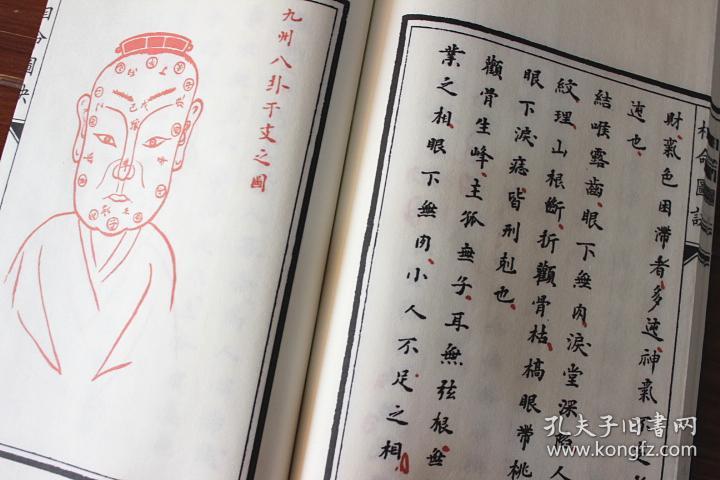 財氣色困滯者多迍神氣
迍也
結喉露齒眼下無肉淚堂深陷人
紋理山根斷折顴骨枯槁眼帶桃
眼下淚痣皆刑剋也
顴骨生峰主孤無子耳無弦根無
業之相眼下無肉小人不足之相
九州八卦干支之圖
孔夫子旧书网
www.kongfz.com